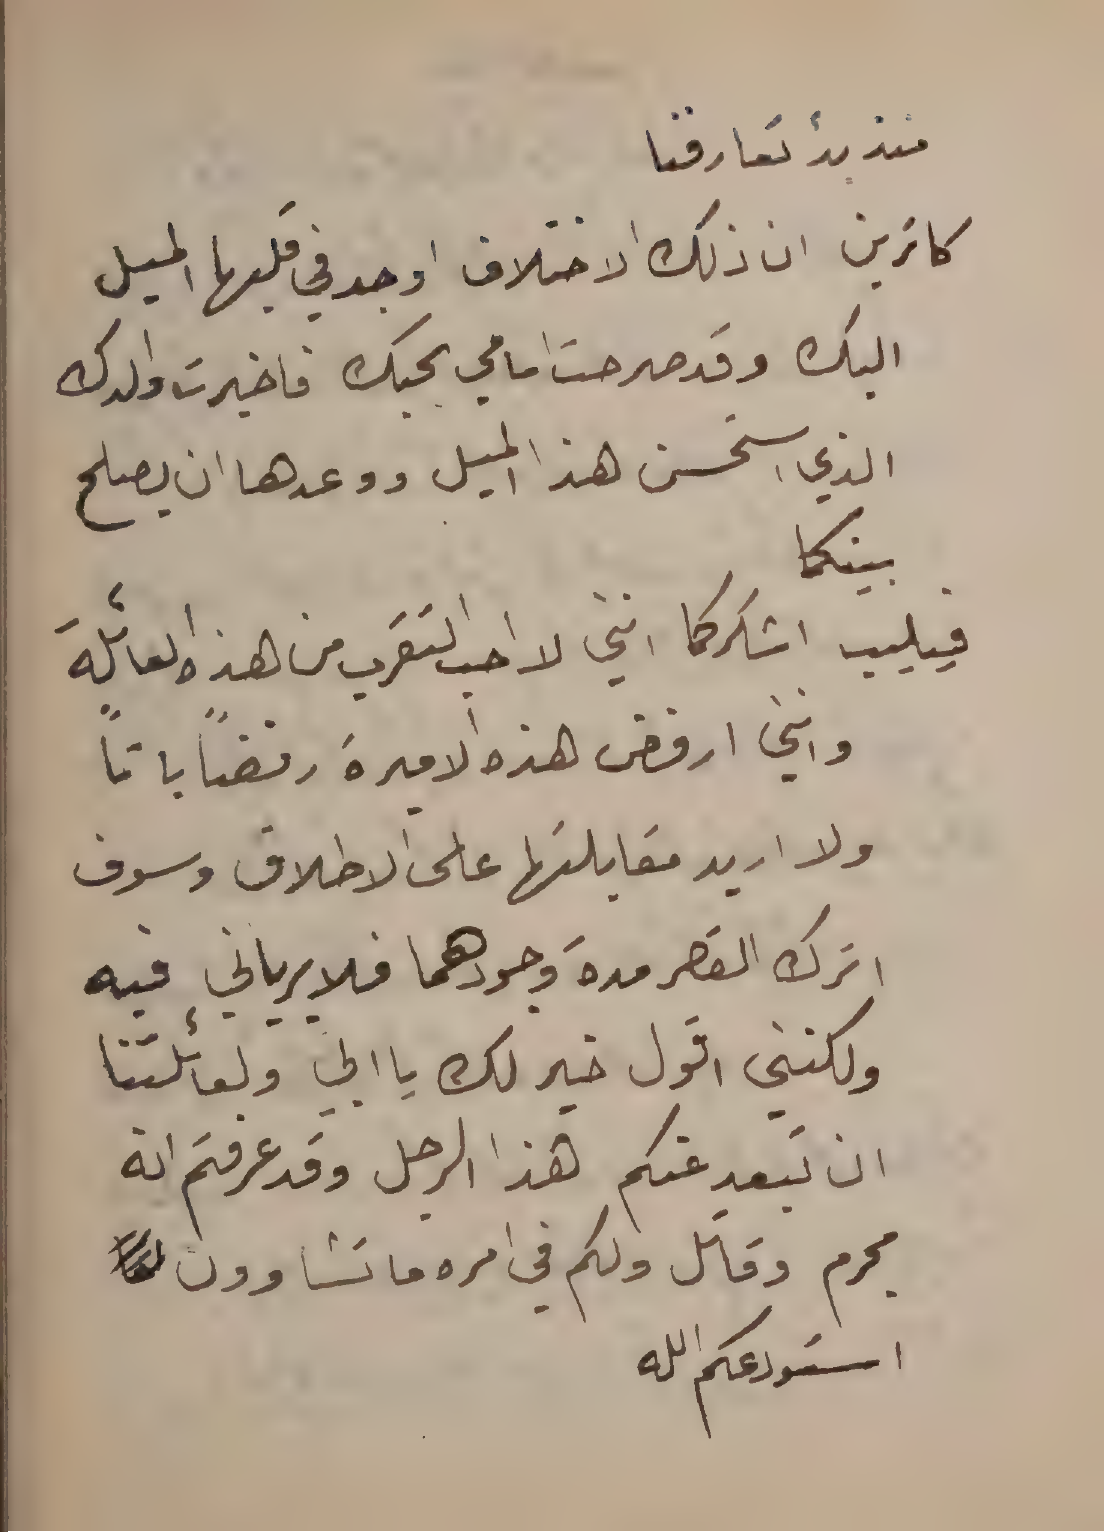 منذ بدءُ تعارفنا
كاترين ان ذلك الاختلاف اوجد في قلبها الميل
اليك وقد صرحت امامي بحبك فاخبرت والدك
الذي استحسن هذا الميل ووعدها ان يصلح
بينكما
فيليب اشكركما انني لا احب التقرب من هذه العائلة
وانني ارفض هذه الاميرة رفضاً باتاً
ولا اريد مقابلتها على الاطلاق وسوف
اترك القصر مدة وجودهما فلا يرياني فيه
ولكنني اقول خير لك يا ابي ولعائلتنا
ان تبعد عنكم هذا الرجل وقد عرفتم انه
مجرم وقاتل ولكم في امره ما تشاورون
استودعكم الله